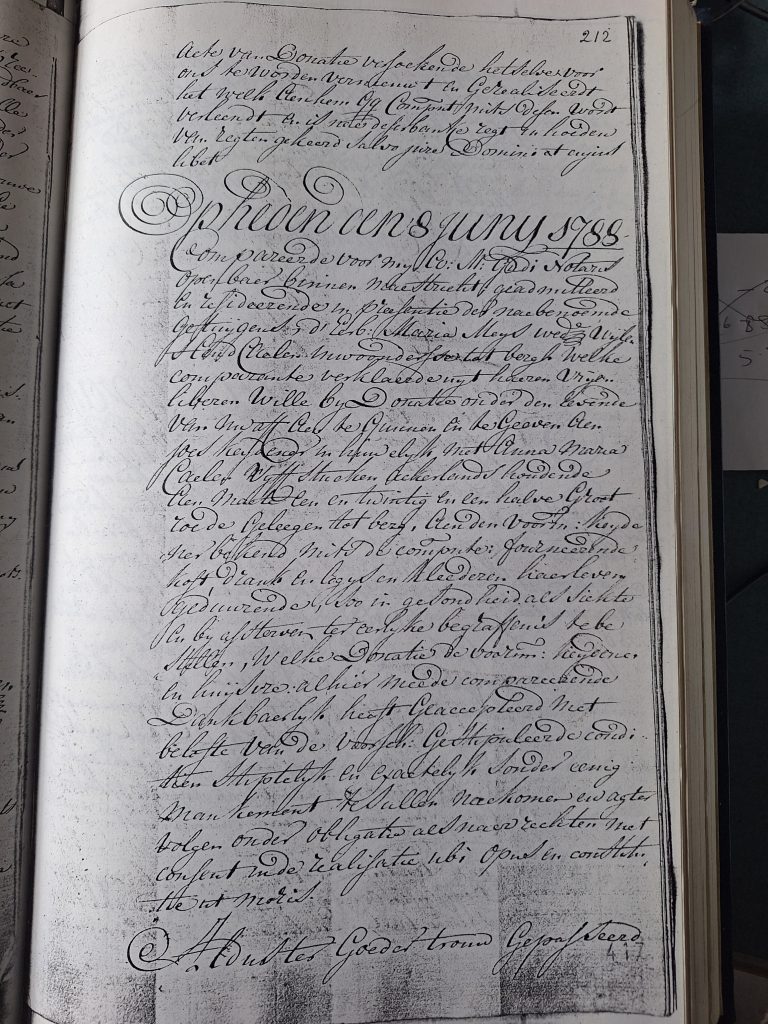 212
Acte van Donatie versoekende hetselve voor
ons te worden vernieuwt en Gerealiseerdt
het welk Aen hem Qq Compnt mits desen wordt
verleendt en is naer deser banke regt in hoeden
van regten gekeerd salvo jure Domini at cujus
libet
Op heden den 8 juny 1788
Compareerde voor my Notaris
openbaer binnen Maestricht geadmitteerd
en resideerende in presentie der naebenoemde
Getuygens: d'eerb: Maria Meys wede Wylen
Caelen inwoondersse tot bergh welke
comparante verklaerde uyt haeren Vryen
liberen Wille by Donatie onder den levende
van nu aff Aen te Gunnen en te Geeven Aen
joes Keydener in huwelyk met Anna Maria
Caelen Vyff stucken ackerlands houdende
Een maet Een en twintig en een halve Groet
roede Geleegen tot berg, Aen den voorn: Keyde
ner bekend mits de compnte: fourneerende
kost, drank en logys en kleederen haer leven
geduurende, soo in gesondheid als siekte
en by afsterven ter eerlyke begraffenis te be
stellen, Welke Donatie de voorn: keydener
en huysvr: alhier meede compareerende
Dankbaerlyk heeft Geaccepteerd met
belofte van de voorsch: Gestipuleerde condi-
tien stiptelyk en exactelyk sonder eenig
mankement te sullen naekomen en agter
volgen onder obligatie als naer rechten met
consent in de realisatie ubi opus en constitu,
tie ut moris.
Aldus ter Goeder trouw Gepasseerd
417